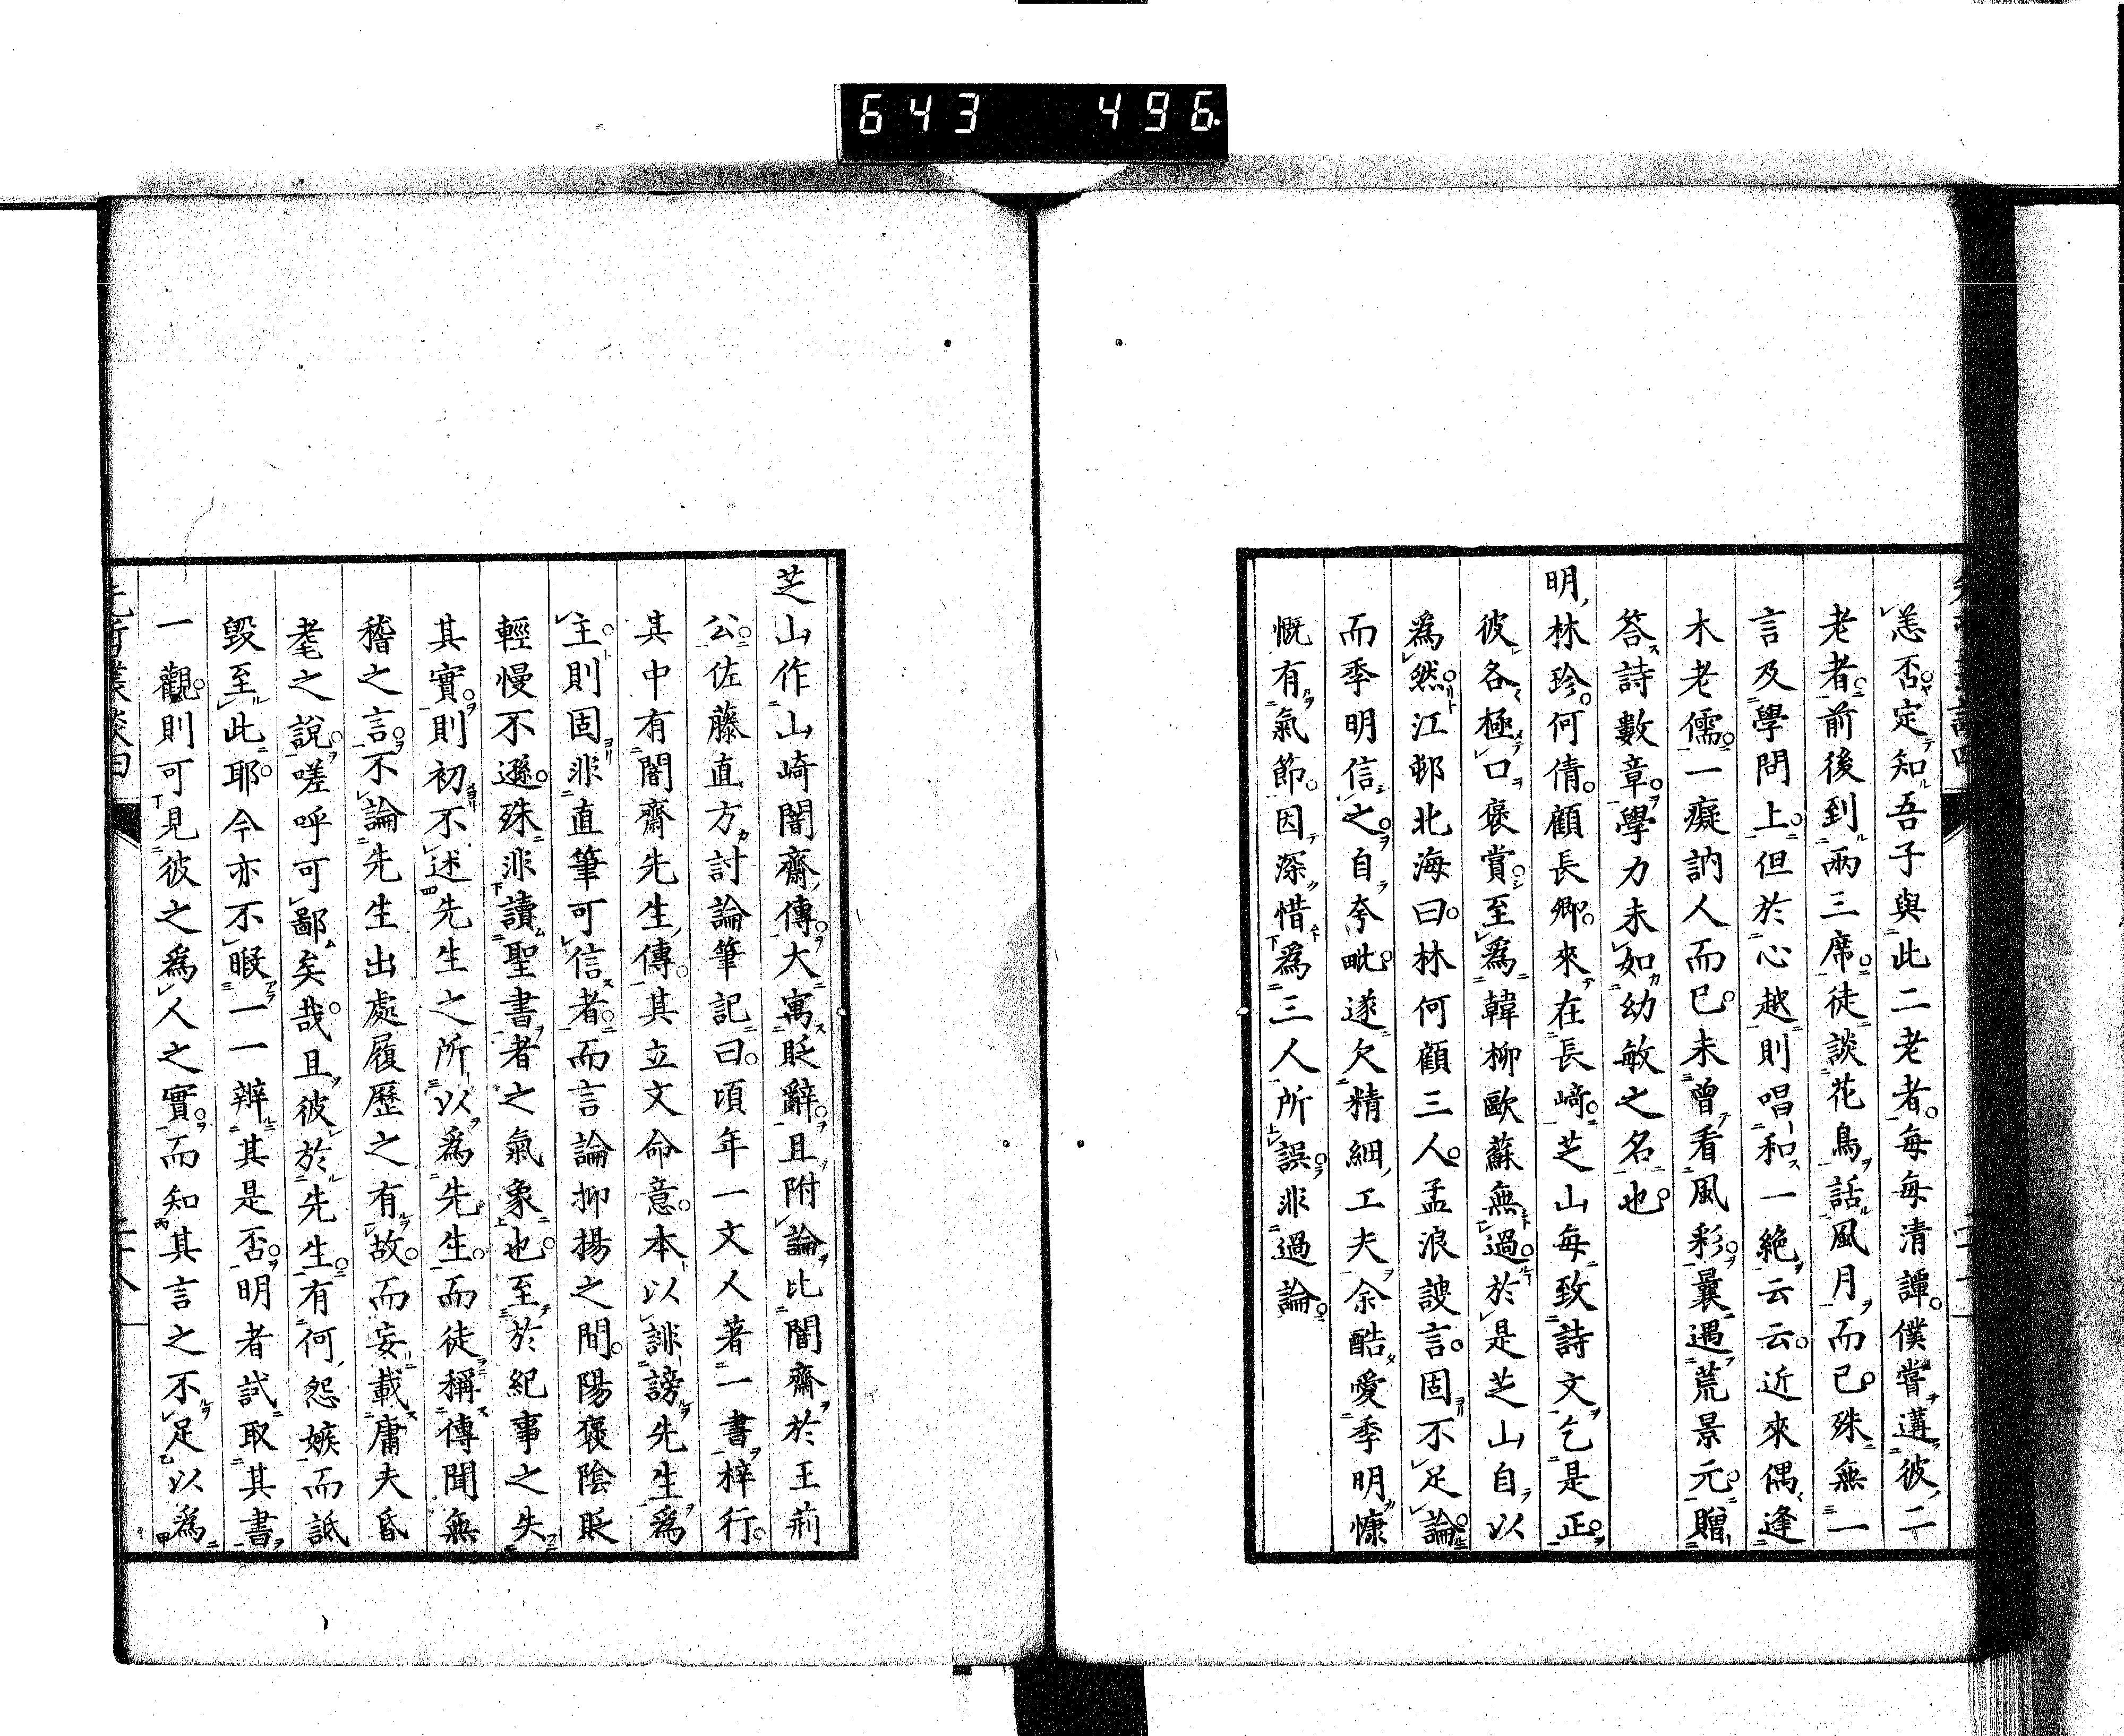 643 496.
恙否定知吾子與此二老者每每清譚僕嘗遘彼二
老者前後到兩三席徒談花鳥話風月而已殊無一
言及學問上但於心越則唱和一絶云云近來偶逢
木老儒一癡訥人而已未曾看風彩曩遇荒景元贈
答詩數章學力未如幼敏之名也
明林珍何倩顧長卿來在長崎芝山每致詩文乞是正
彼各極口褒賞至爲韓柳歐蘇無過於是芝山自以
爲然江邨北海曰林何顧三人孟浪謏言固不足論
而季明信之自夸毗遂欠精細工夫余酷愛季明慷
慨有氣節因深惜爲三人所誤非過論
芝山作山崎闇齋傳大寓貶辭且附論比闇齋於王荊
公佐藤直方討論筆記曰頃年一文人著一書梓行
其中有闇齋先生傳其立文命意本以誹謗先生爲
主則固非直筆可信者而言論抑揚之間陽褒陰貶
輕慢不遜殊非讀聖書者之氣象也至於紀事之失
其實則初不述先生之所以爲先生而徒稱傳聞無
稽之言不論先生出處履歷之有故而妄載庸夫昏
耄之說嗟呼可鄙矣哉且彼於先生有何怨嫉而詆
毀至此耶今亦不暇一一辨其是否明者試取其書
一觀則可見彼之爲人之實而知其言之不足以爲